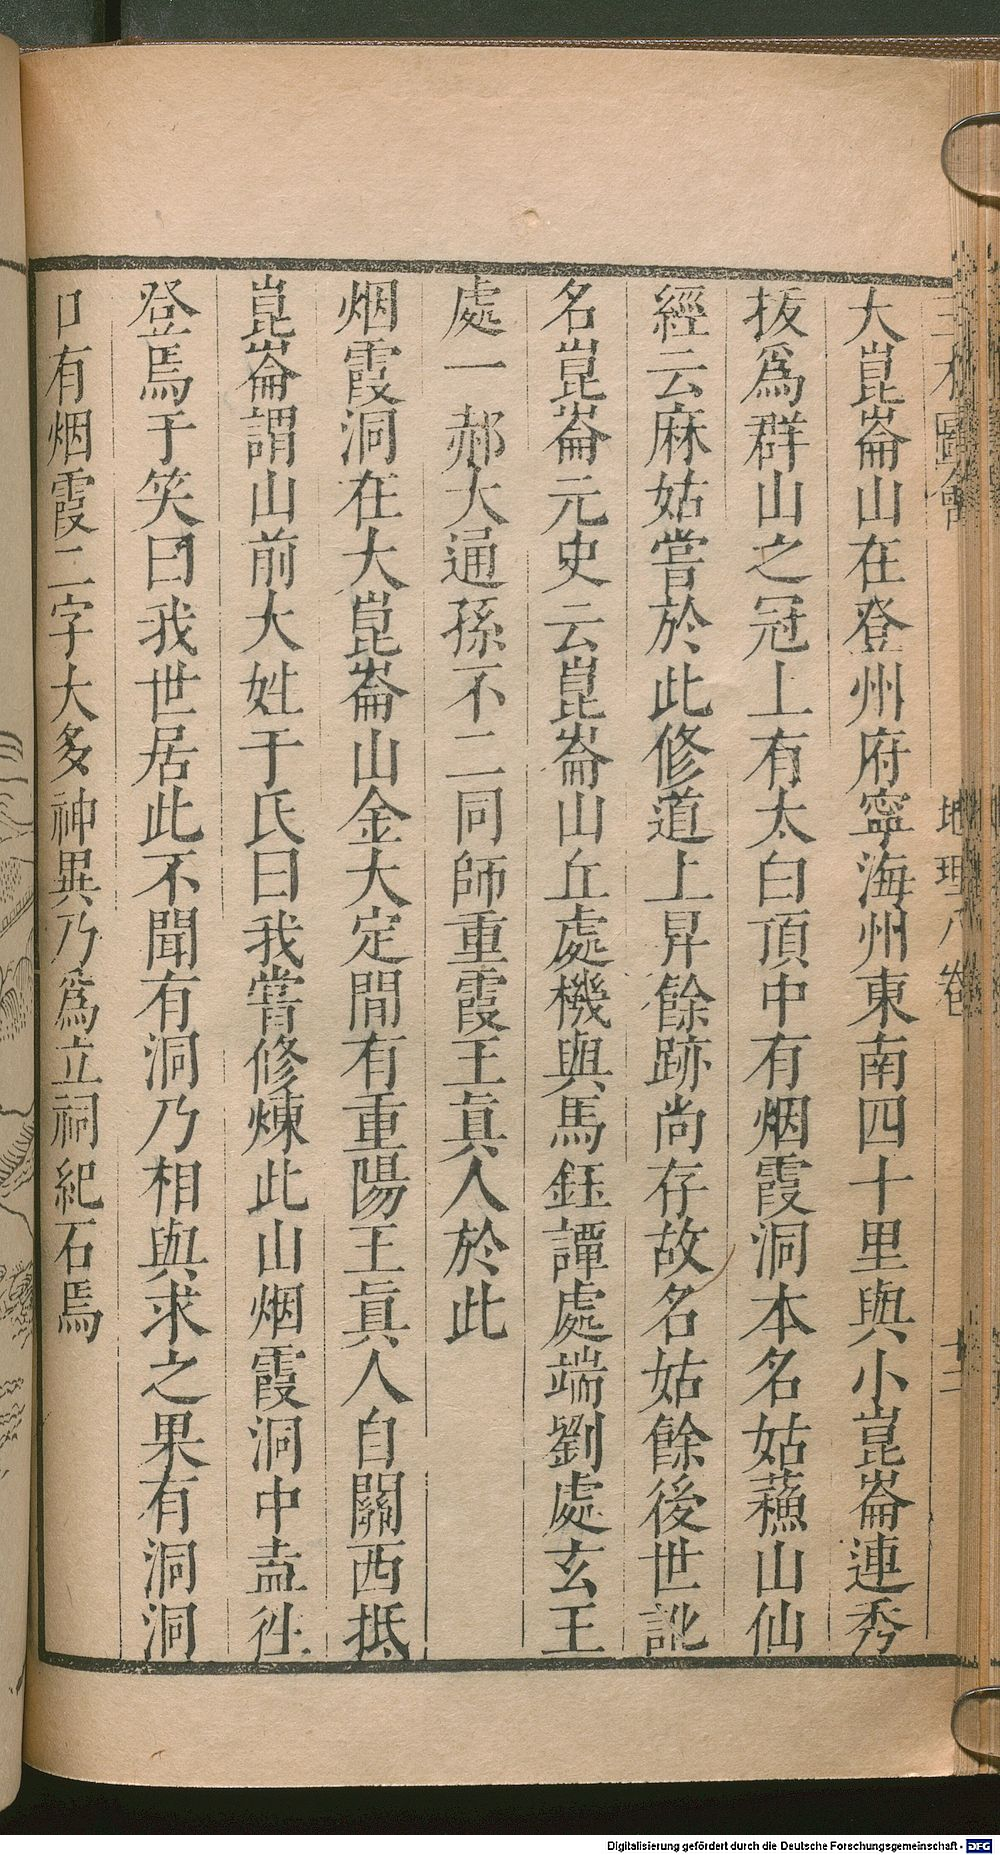 三才圖會 地理八卷 十二
大崑崙山在登州府寧海州東南四十里與小崑崙連秀
拔為群山之冠上有太白頂中有烟霞洞本名姑蘓山仙
經云麻姑嘗於此修道上昇餘跡尚存故名姑餘後世訛
名崑崙元史云崑崙山丘處機與馬鈺譚處端劉處玄王
處一郝大通孫不二同師重霞王真人於此
烟霞洞在大崑崙山金大定間有重陽王真人自關西抵
崑崙謂山前大姓于氏曰我嘗修煉此山烟霞洞中盍徃
登焉于笑曰我世居此不聞有洞乃相與求之果有洞洞
口有烟霞二字大多神異乃為立祠紀石焉
Digitalisierung gefördert durch die Deutsche Forschungsgemeinschaft - DFG